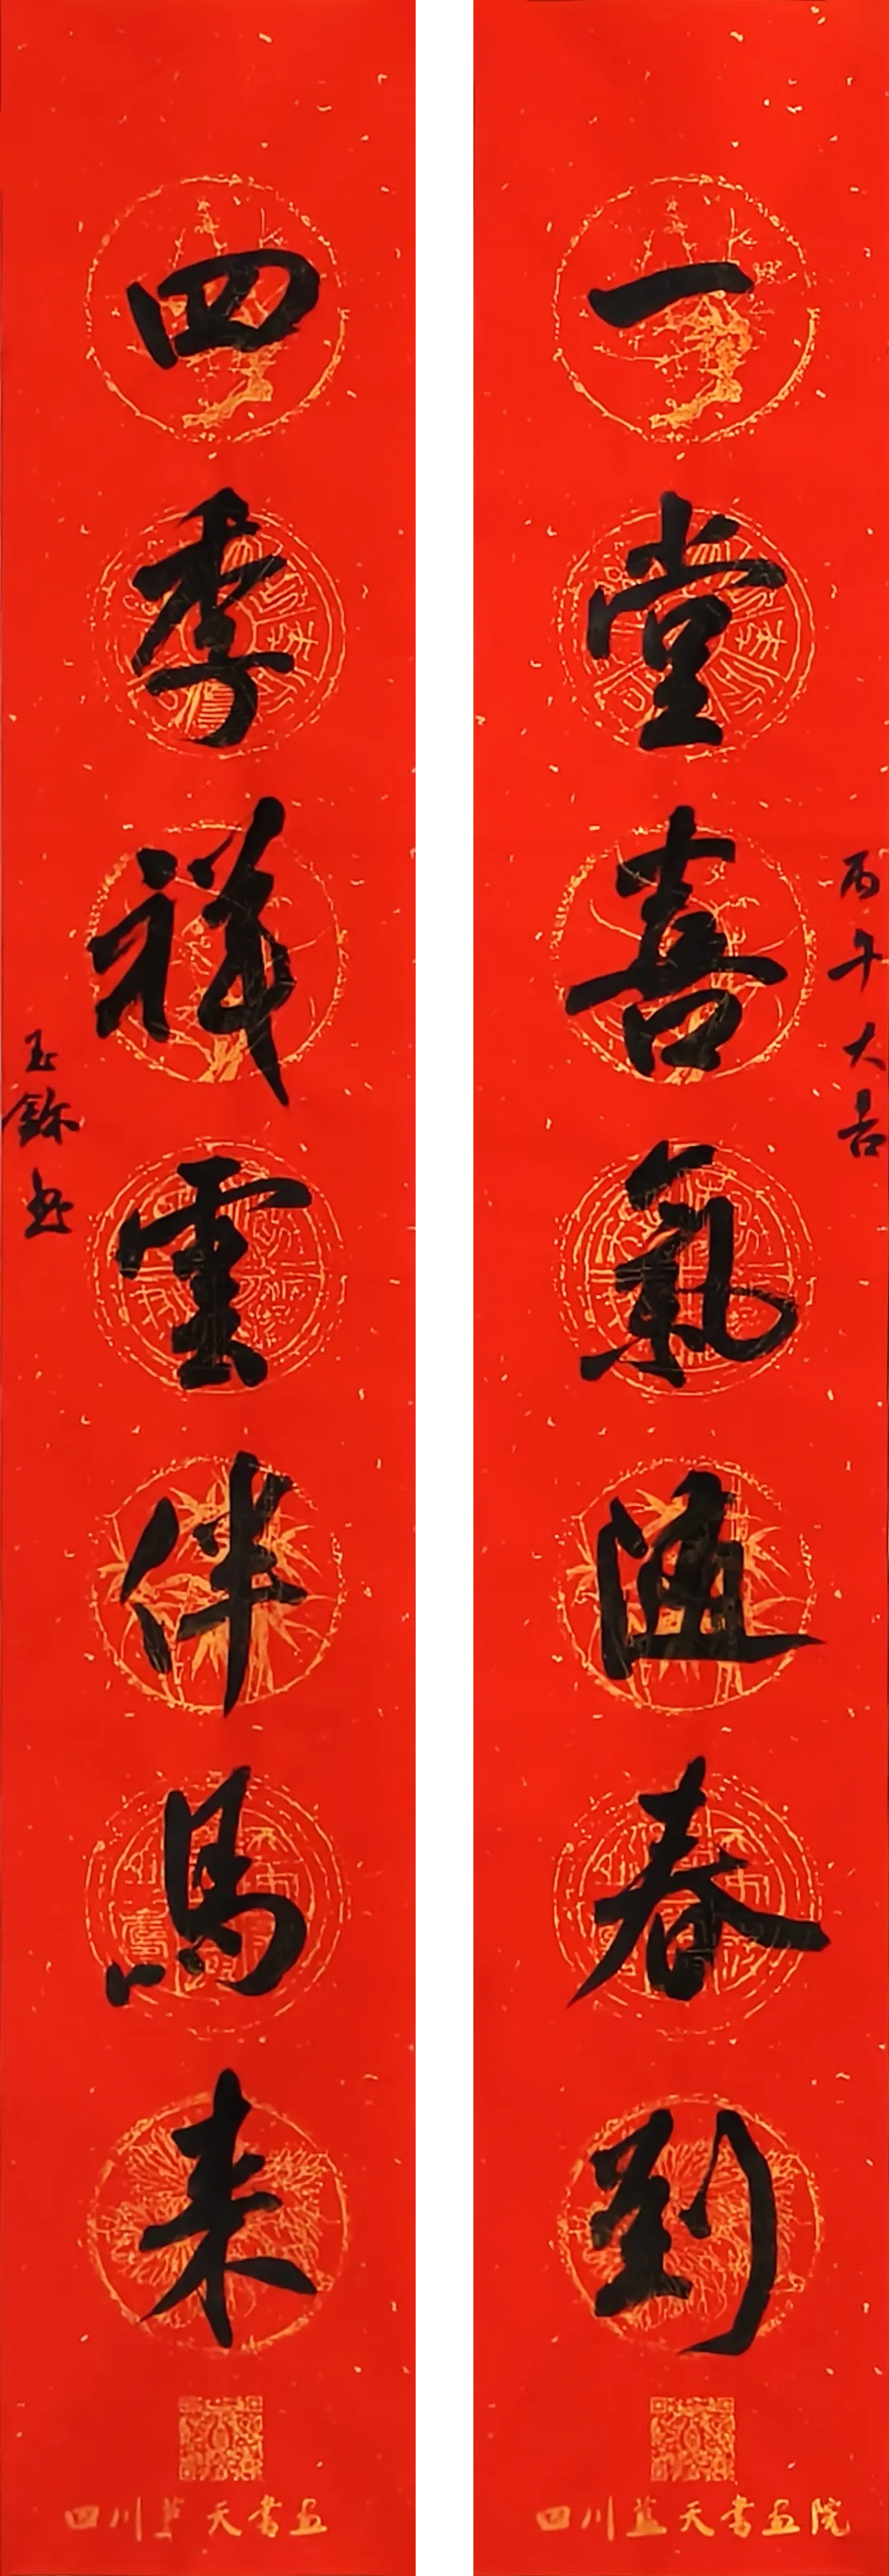 丙午大吉
一堂喜氣随春到
四川蓝天書画院
四季祥雲伴馬来
玉
四川蓝天書画